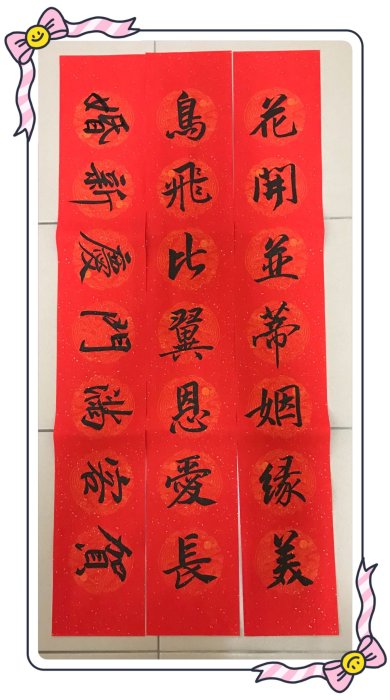 花開並蒂姻緣美
鳥飛比翼恩愛長
賀客滿門慶新婚